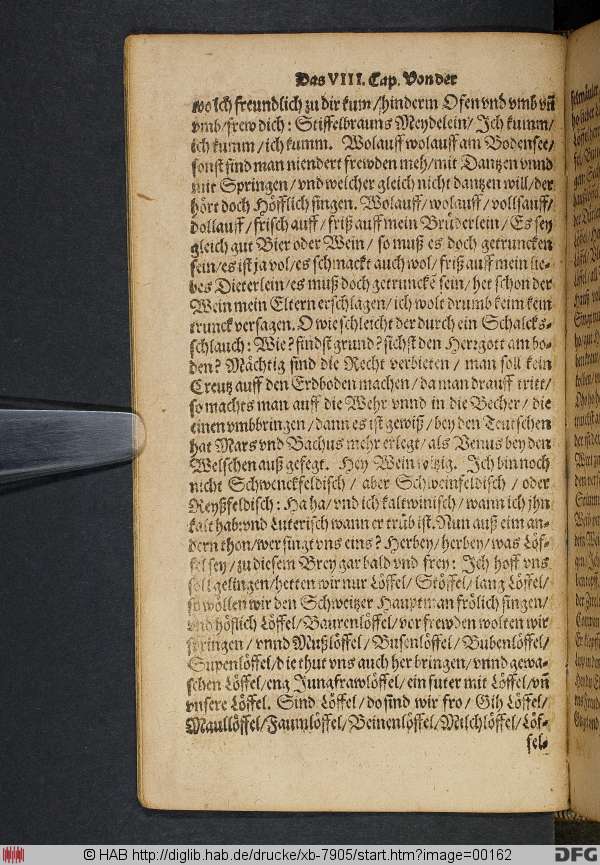 Das VIII. Cap. Von der
wo ich freundlich zu dir kum/hinderm Ofen vnd vmb vñ
vmb/frew dich: Stiffelbrauns Meydelein/Ich kumm/
ich kumm/ich kumm. Wolauff wolauff am Bodensee/
sonst sind man niendert frewden meh/mit Dantzen vnnd
mit Springen/vnd welcher gleich nicht dantzen will/der
hört doch Höfflich singen. Wolauff/wolauff/vollsauff/
dollauff/frisch auff/friß auff mein Brüderlein/Es sey
gleich gut Bier oder Wein/so muß es doch getruncken
sein/es ist ja vol/es schmackt auch wol/friß auff mein lie-
bes Dieterlein/es muß doch getruncke sein/het schon der
Wein mein Eltern erschlagen/ich wolt drumb keim kein
trunck versagen. O wie schleicht der durch ein Schalcks-
schlauch: Wie? findst grund? sichst den Herrgott am bo-
den? Mächtig sind die Recht verbieten/man soll kein
Creutz auff den Erdboden machen/da man drauff tritt/
so machts man auff die Wehr vnnd in die Becher/die
einen vmbbringen/dann es ist gewiß/bey den Teutschen
hat Mars vnd Bachus mehr erlegt/als Venus bey den
Welschen auß gefegt. Hey Wein Ich bin noch
nicht Schwenckfeldisch/aber Schweinfeldisch/oder
Reyßfeldisch: Ha ha/vnd ich kaltwinisch/wann ich jhn
kalt hab: vnd Luterisch wann er trüb ist. Nun auß eim an-
dern thon/wer singt vns eins? Herbey/herbey/was Löf-
fel sey/zu diesem Brey gar bald vnd frey: Ich hoff vns
soll gelingen/hetten wir nur Löffel/Stöffel/lang Löffel/
so wöllen wir den Schweitzer Hauptman frölich singen/
vnd höflich Löffel/Baurenlöffel/vor frewden wolten wir
springen/vnnd Mußlöffel/Busenlöffel/Bubenlöffel/
Supenlöffel/die thut vns auch her bringen/vnnd gewa-
schen Löffel/eng Jungfrawlöffel/ein futer mit Löffel/vñ
vnsere Löffel. Sind Löffel/do sind wir fro/Gih Löffel/
Maullöffel/Faumlöffel/Beinenlöffel/Milchlöffel/Löf-
fel-
© HAB http://diglib.hab.de/drucke/xb-7905/start.htm?image=00162
DFG